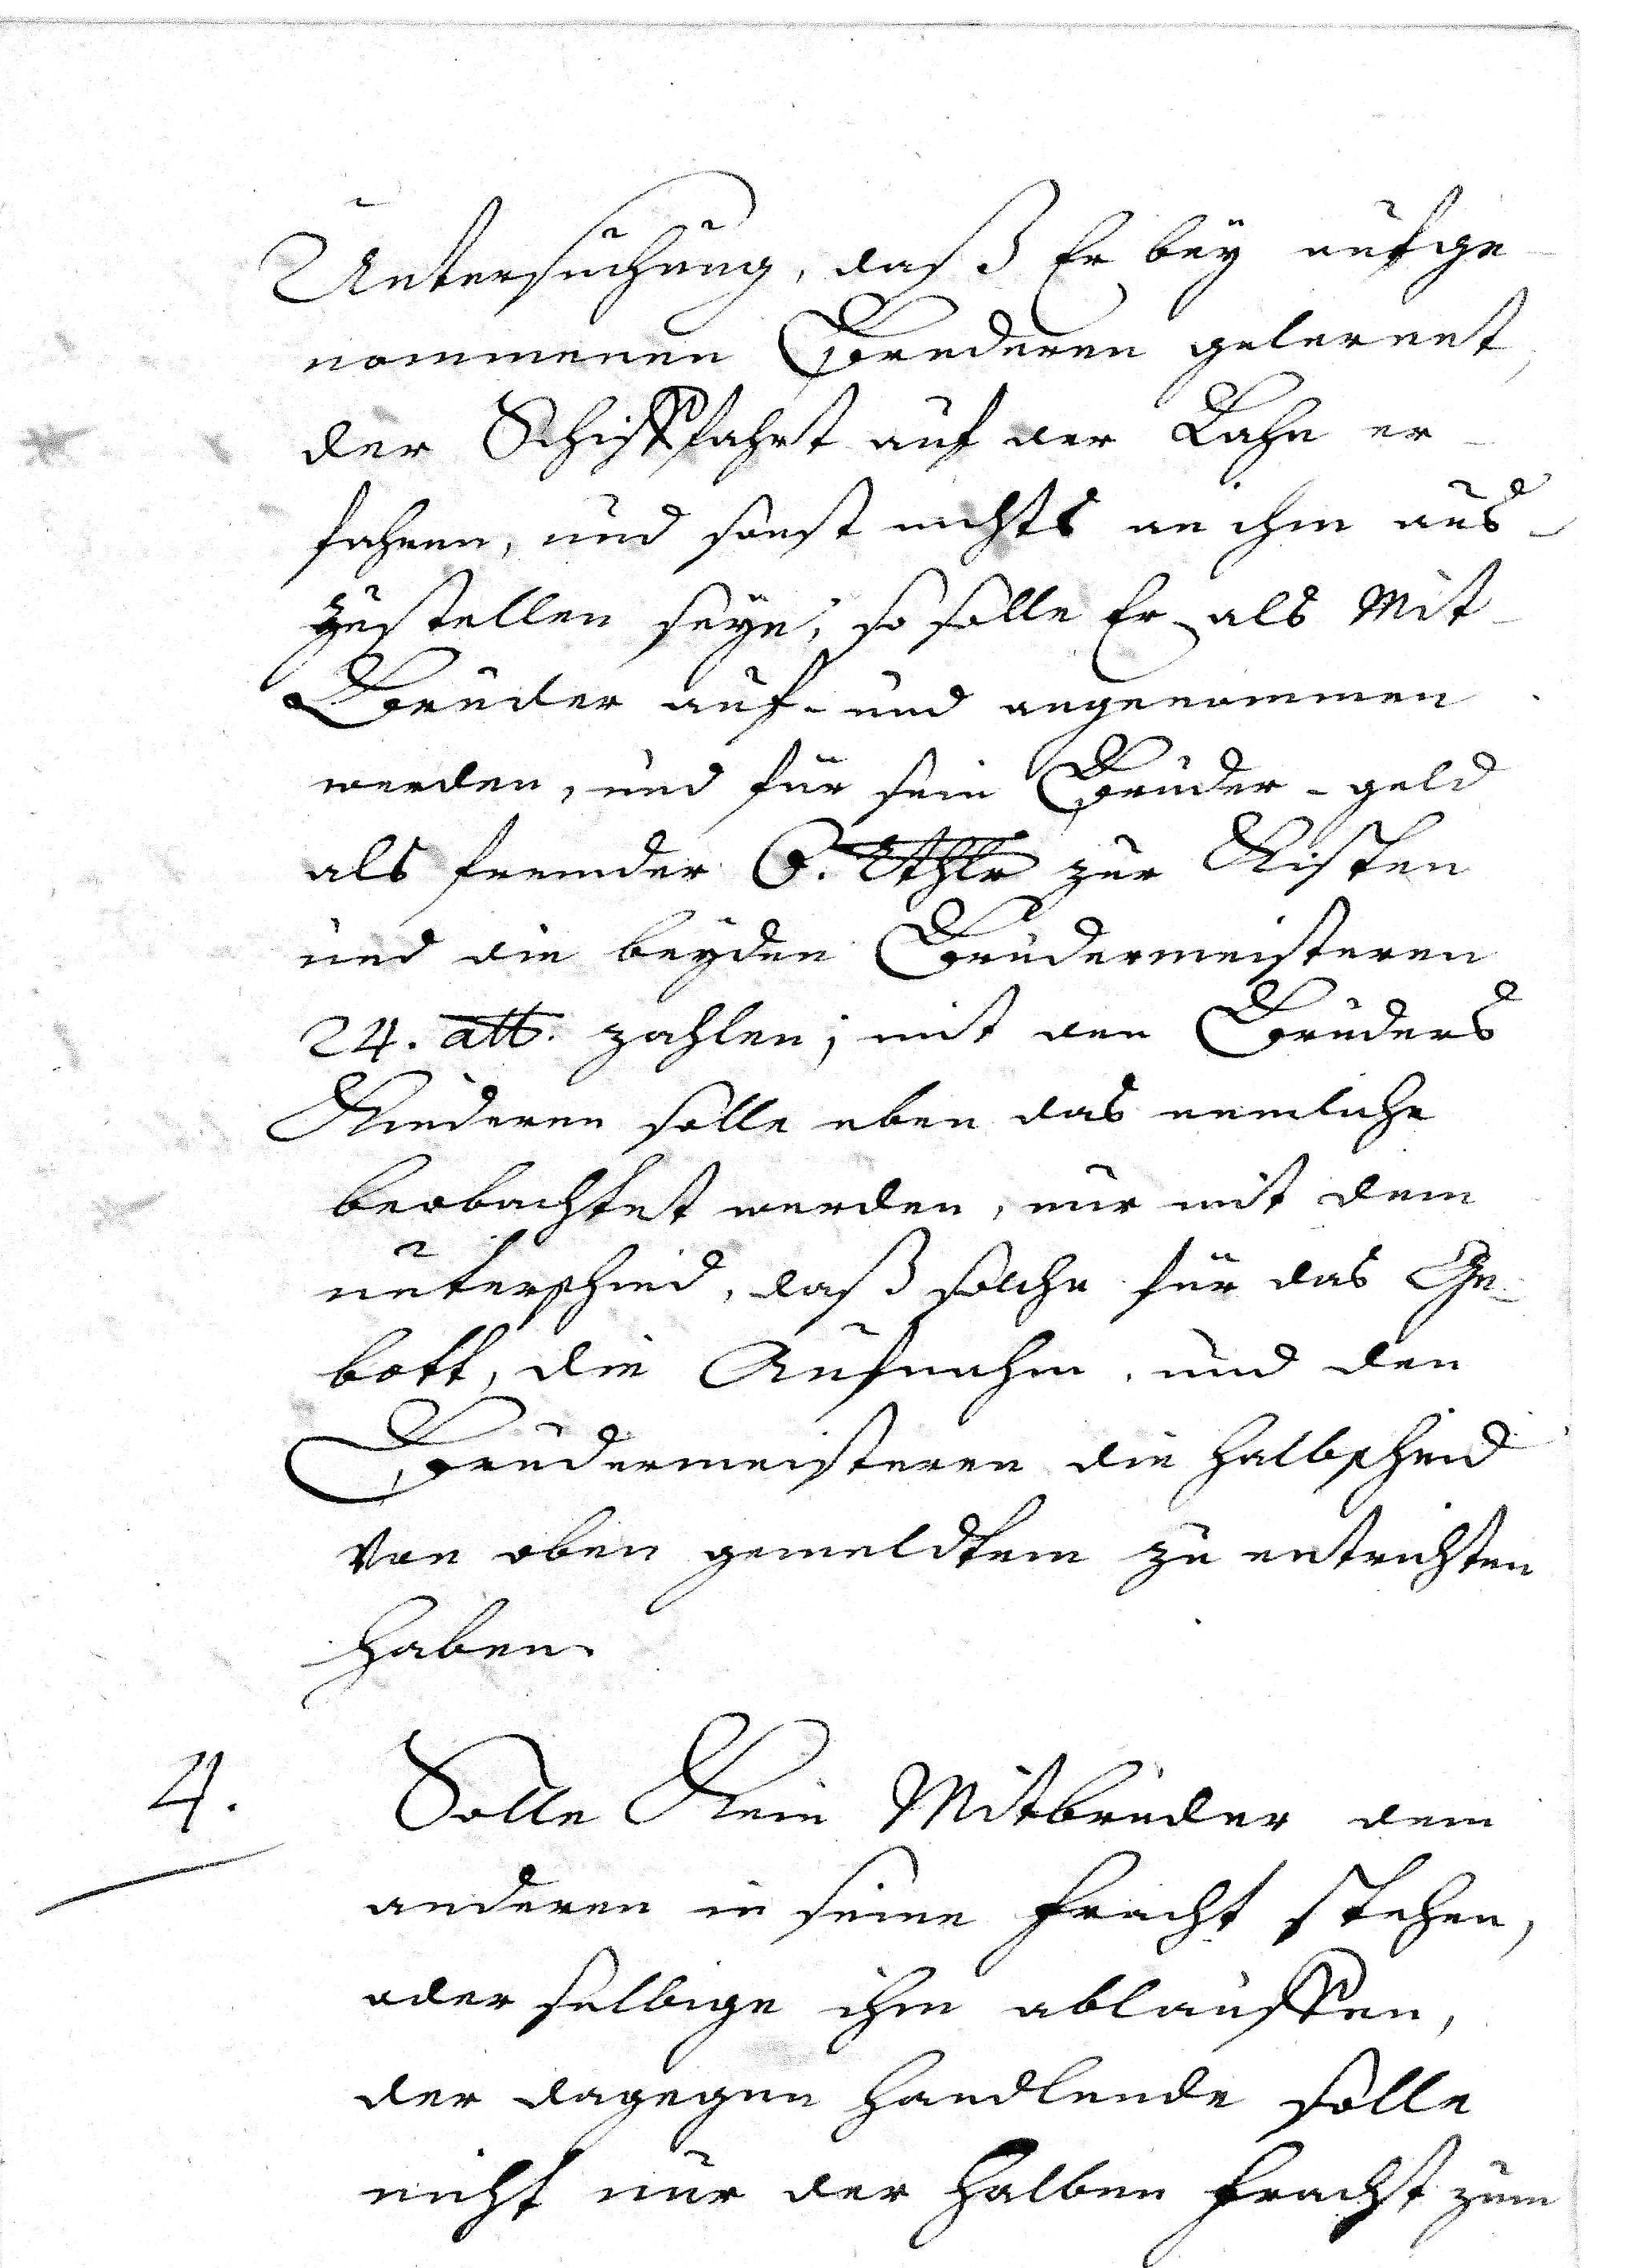 Untersuchung, daß Er bey aufge-
nommenen Bruderen gelernet,
der Schiffahrt auf der Lahn er-
fahren, und sonst nichts an ihm aus-
zustellen seye, so solle Er als Mit-
Bruder auf- und angenommen
werden, und für sein Bruder-geld
als fremder 6. Rthlr zur Kisten
und die beyden Brudermeisteren
24. alb. zahlen; mit den Bruders
Kinderen solle eben das nemliche
beobachtet werden, nur mit dem
unterschied, daß solche für das Ge-
bott, die Aufnahm, und den
Brudermeisteren die halbscheid
von oben gemeldtem zu entrichten
haben.
4. Solle Kein Mitbruder dem
anderen in seine fracht stehen,
oder selbige ihm ablauffen,
der dagegen handlende solle
nicht nur der halben fracht zum